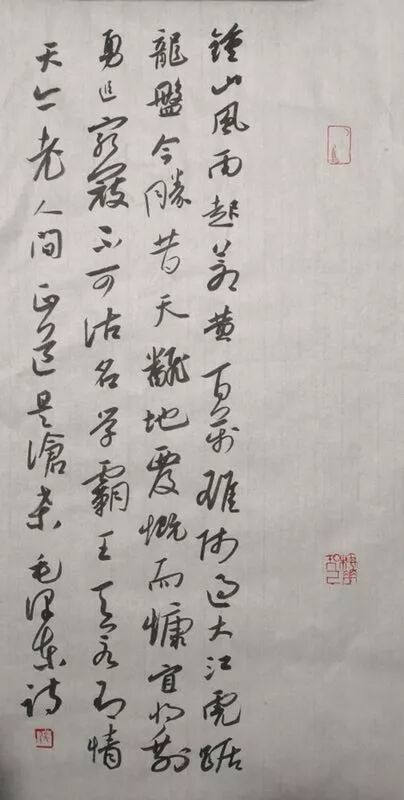 鍾山風雨起蒼黄百萬雄师过大江虎踞
龍盤今勝昔天翻地覆慨而慷宜将剩
勇追窮寇不可沽名学霸王天若有情
天亦老人間正道是滄桑毛泽东詩